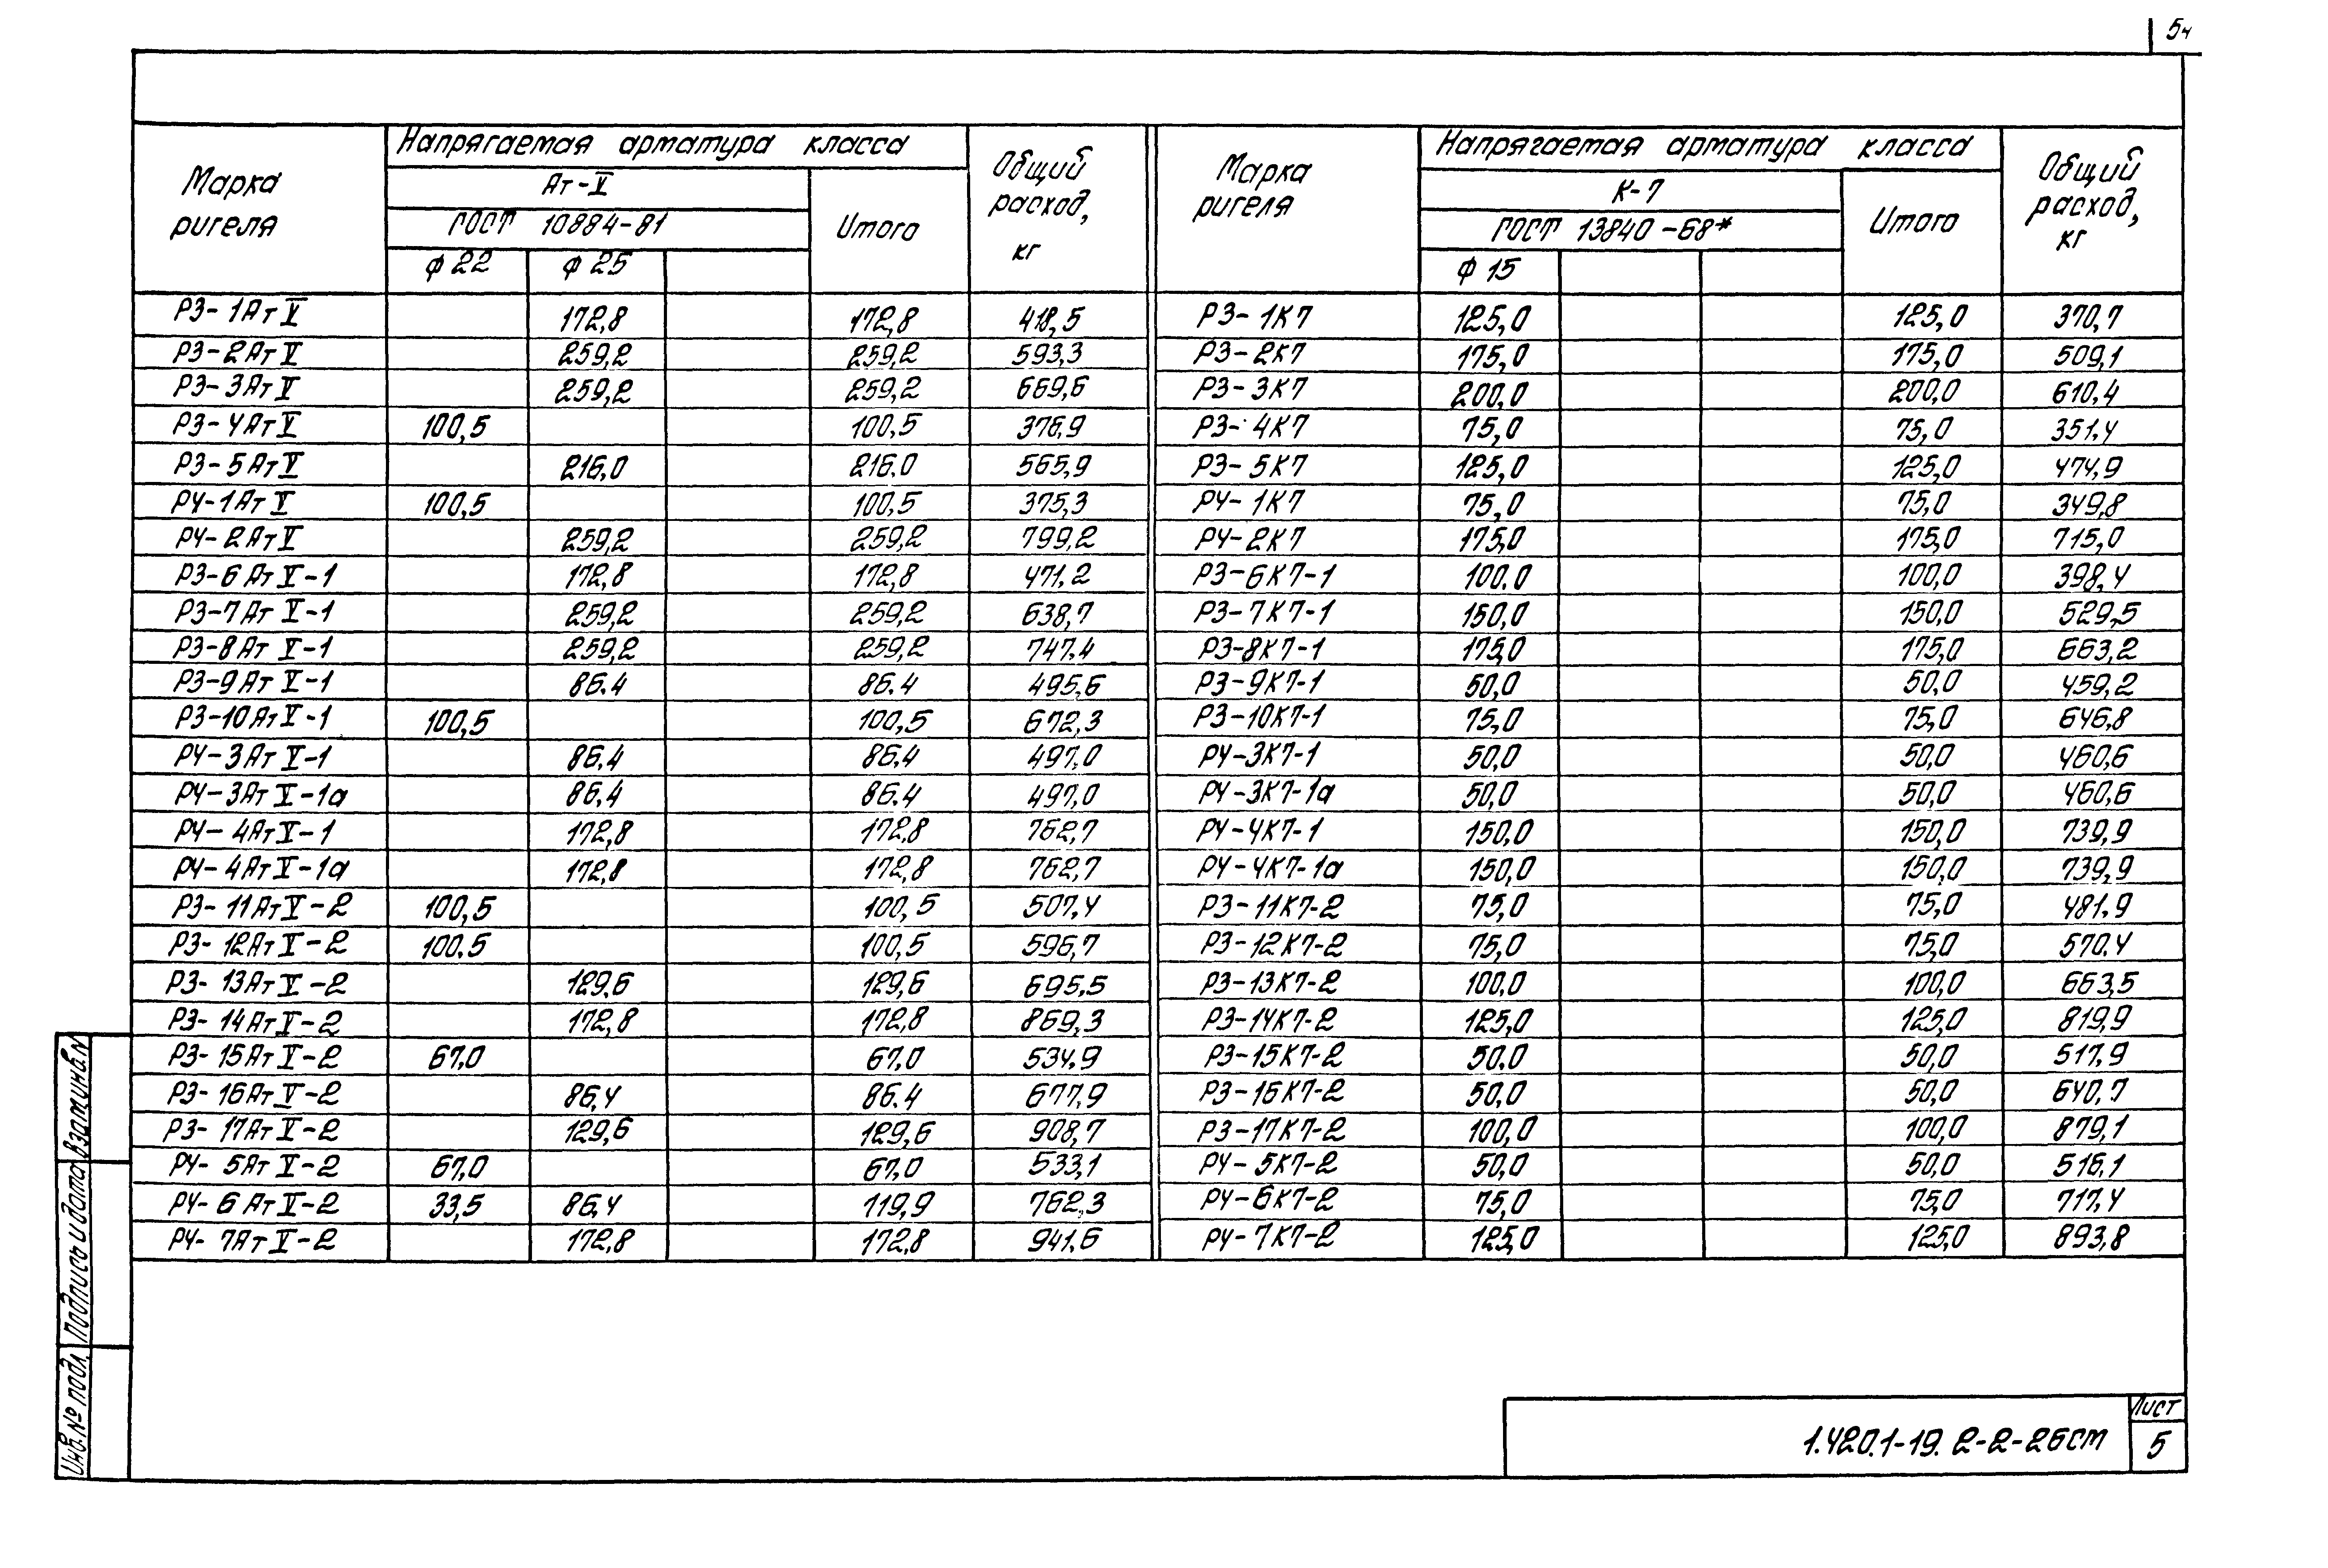 54
Марка ригеля | Напрягаемая арматура класса | Общий расход, кг | Марка ригеля | Напрягаемая арматура класса | Общий расход, кг
Ат-V | Итого | К-7 | Итого
ГОСТ 10884-81 | ГОСТ 13840-68*
ф 22 | ф 25 | ф 15
Р3-1АтV | 172,8 | 172,8 | 418,5 | Р3-1К7 | 125,0 | 125,0 | 370,7
Р3-2АтV | 259,2 | 259,2 | 593,3 | Р3-2К7 | 175,0 | 175,0 | 509,1
Р3-3АтV | 259,2 | 259,2 | 669,6 | Р3-3К7 | 200,0 | 200,0 | 610,4
Р3-4АтV | 100,5 | 100,5 | 376,9 | Р3-4К7 | 75,0 | 75,0 | 351,4
Р3-5АтV | 216,0 | 216,0 | 565,9 | Р3-5К7 | 125,0 | 125,0 | 474,9
Р4-1АтV | 100,5 | 100,5 | 375,3 | Р4-1К7 | 75,0 | 75,0 | 349,8
Р4-2АтV | 259,2 | 259,2 | 799,2 | Р4-2К7 | 175,0 | 175,0 | 715,0
Р3-6АтV-1 | 172,8 | 172,8 | 471,2 | Р3-6К7-1 | 100,0 | 100,0 | 398,4
Р3-7АтV-1 | 259,2 | 259,2 | 638,7 | Р3-7К7-1 | 150,0 | 150,0 | 529,5
Р3-8АтV-1 | 259,2 | 259,2 | 747,4 | Р3-8К7-1 | 175,0 | 175,0 | 663,2
Р3-9АтV-1 | 86,4 | 86,4 | 495,6 | Р3-9К7-1 | 50,0 | 50,0 | 459,2
Р3-10АтV-1 | 100,5 | 100,5 | 672,3 | Р3-10К7-1 | 75,0 | 75,0 | 646,8
Р4-3АтV-1 | 86,4 | 86,4 | 497,0 | Р4-3К7-1 | 50,0 | 50,0 | 460,6
Р4-3АтV-1а | 86,4 | 86,4 | 497,0 | Р4-3К7-1а | 50,0 | 50,0 | 460,6
Р4-4АтV-1 | 172,8 | 172,8 | 762,7 | Р4-4К7-1 | 150,0 | 150,0 | 739,9
Р4-4АтV-1а | 172,8 | 172,8 | 762,7 | Р4-4К7-1а | 150,0 | 150,0 | 739,9
Р3-11АтV-2 | 100,5 | 100,5 | 507,4 | Р3-11К7-2 | 75,0 | 75,0 | 481,9
Р3-12АтV-2 | 100,5 | 100,5 | 596,7 | Р3-12К7-2 | 75,0 | 75,0 | 570,4
Р3-13АтV-2 | 129,6 | 129,6 | 695,5 | Р3-13К7-2 | 100,0 | 100,0 | 663,5
Р3-14АтV-2 | 172,8 | 172,8 | 869,3 | Р3-14К7-2 | 125,0 | 125,0 | 819,9
Р3-15АтV-2 | 67,0 | 67,0 | 534,9 | Р3-15К7-2 | 50,0 | 50,0 | 517,9
Р3-16АтV-2 | 86,4 | 86,4 | 677,9 | Р3-16К7-2 | 50,0 | 50,0 | 640,7
Р3-17АтV-2 | 129,6 | 129,6 | 908,7 | Р3-17К7-2 | 100,0 | 100,0 | 879,1
Р4-5АтV-2 | 67,0 | 67,0 | 533,1 | Р4-5К7-2 | 50,0 | 50,0 | 516,1
Р4-6АтV-2 | 33,5 | 86,4 | 119,9 | 762,3 | Р4-6К7-2 | 75,0 | 75,0 | 717,4
Р4-7АтV-2 | 172,8 | 172,8 | 941,6 | Р4-7К7-2 | 125,0 | 125,0 | 893,8
Взам.инв.N
Подпись и дата
Инв.№ подл.
1.420.1-19. 2-2-26СМ
Лист
5